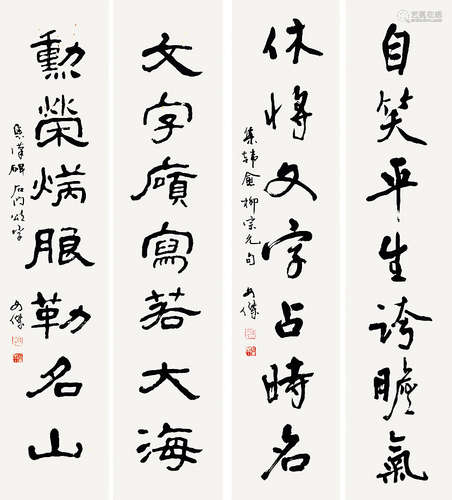 自笑平生誇膽氣
休將文字占時名
集韓愈柳宗元句
傑
文字寫若大海
勳榮服勒名山
集漢碑石門頌字
傑
艺狐在线